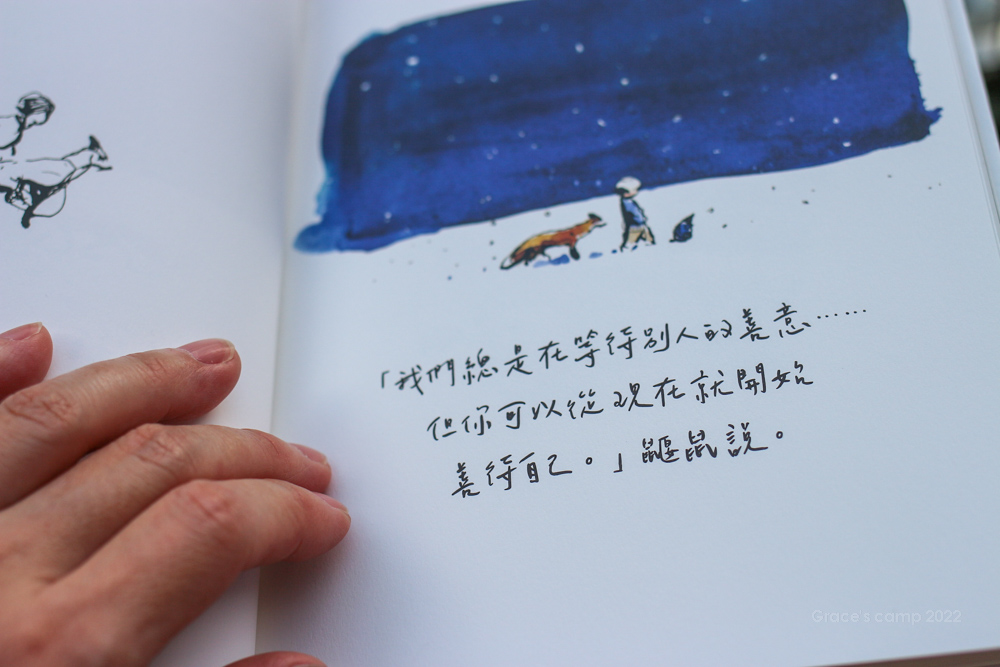 「我們總是在等待別人的善意……
但你可以從現在就開始
善待自己。」鼴鼠說。
Grace's camp 2022